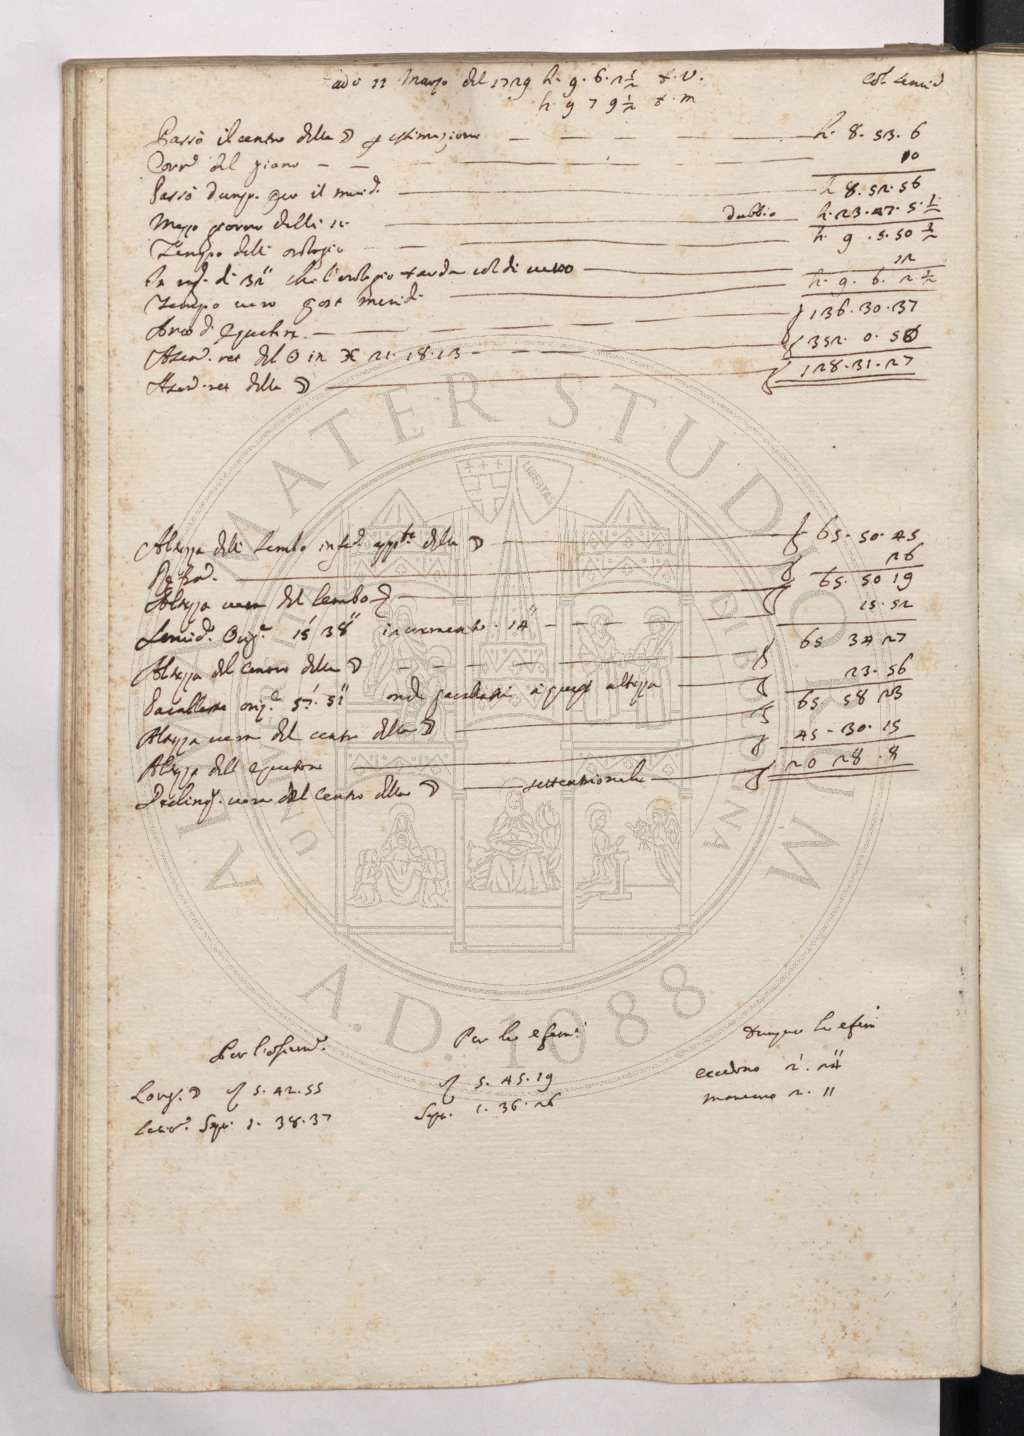 adi 11 Marzo del 1729 h. 9. 6. 2 1/2 t. v.
h 9 7 9 1/2 t. m
Col Semid
Passò il centro della ☽ p estimazione h. 8. 53. 6
Corr.e del piano 10
Passò dunq. per il merid. h 8. 52. 56
Mezzo giorno delli 11 dubbio h. 23. 47. 5. 1/2
Tempo dell orologio h. 9. 5. 50 1/2
In rag. di 32" che l'orologio tarda col di vero 12
Tempo vero post merid. h. 9. 6. 2 1/2
Arco d Equatore 136. 30. 37
Ascen. ret del ☉ in ♓ 21. 18. 13 352. 0. 50
Ascen. ret della ☽ 128. 31. 27
Altezza dell Lembo infe. appte. della ☽ 65. 50. 45
Refra. 26
Altezza vera del lembo ☽ 65. 50 19
Semid. Oriz. 15' 38" incremento. 14" 15. 52
Altezza del centro della ☽ 65 34 27
Parallasse oriz. 57' 51" onde parallasse a quest altezza 23. 56
Altezza vera del centro della ☽ 65. 58 23
Altezza dell Equatore 45. 30. 15
Declinaz. vera del Centro della ☽ settentrionale 20 28. 8
Per l'osservaz.
Per le efem.
Dunque le efem
Long. ☽ ♌ 5. 42. 55
♌ 5. 45. 19
eccedono 2'. 24"
Latit. Sept. 1. 38. 37
Sept. 1. 36. 26
mancano 2. 11
ALMA MATER STUDIORUM
A.D. 1088
LIBERTAS